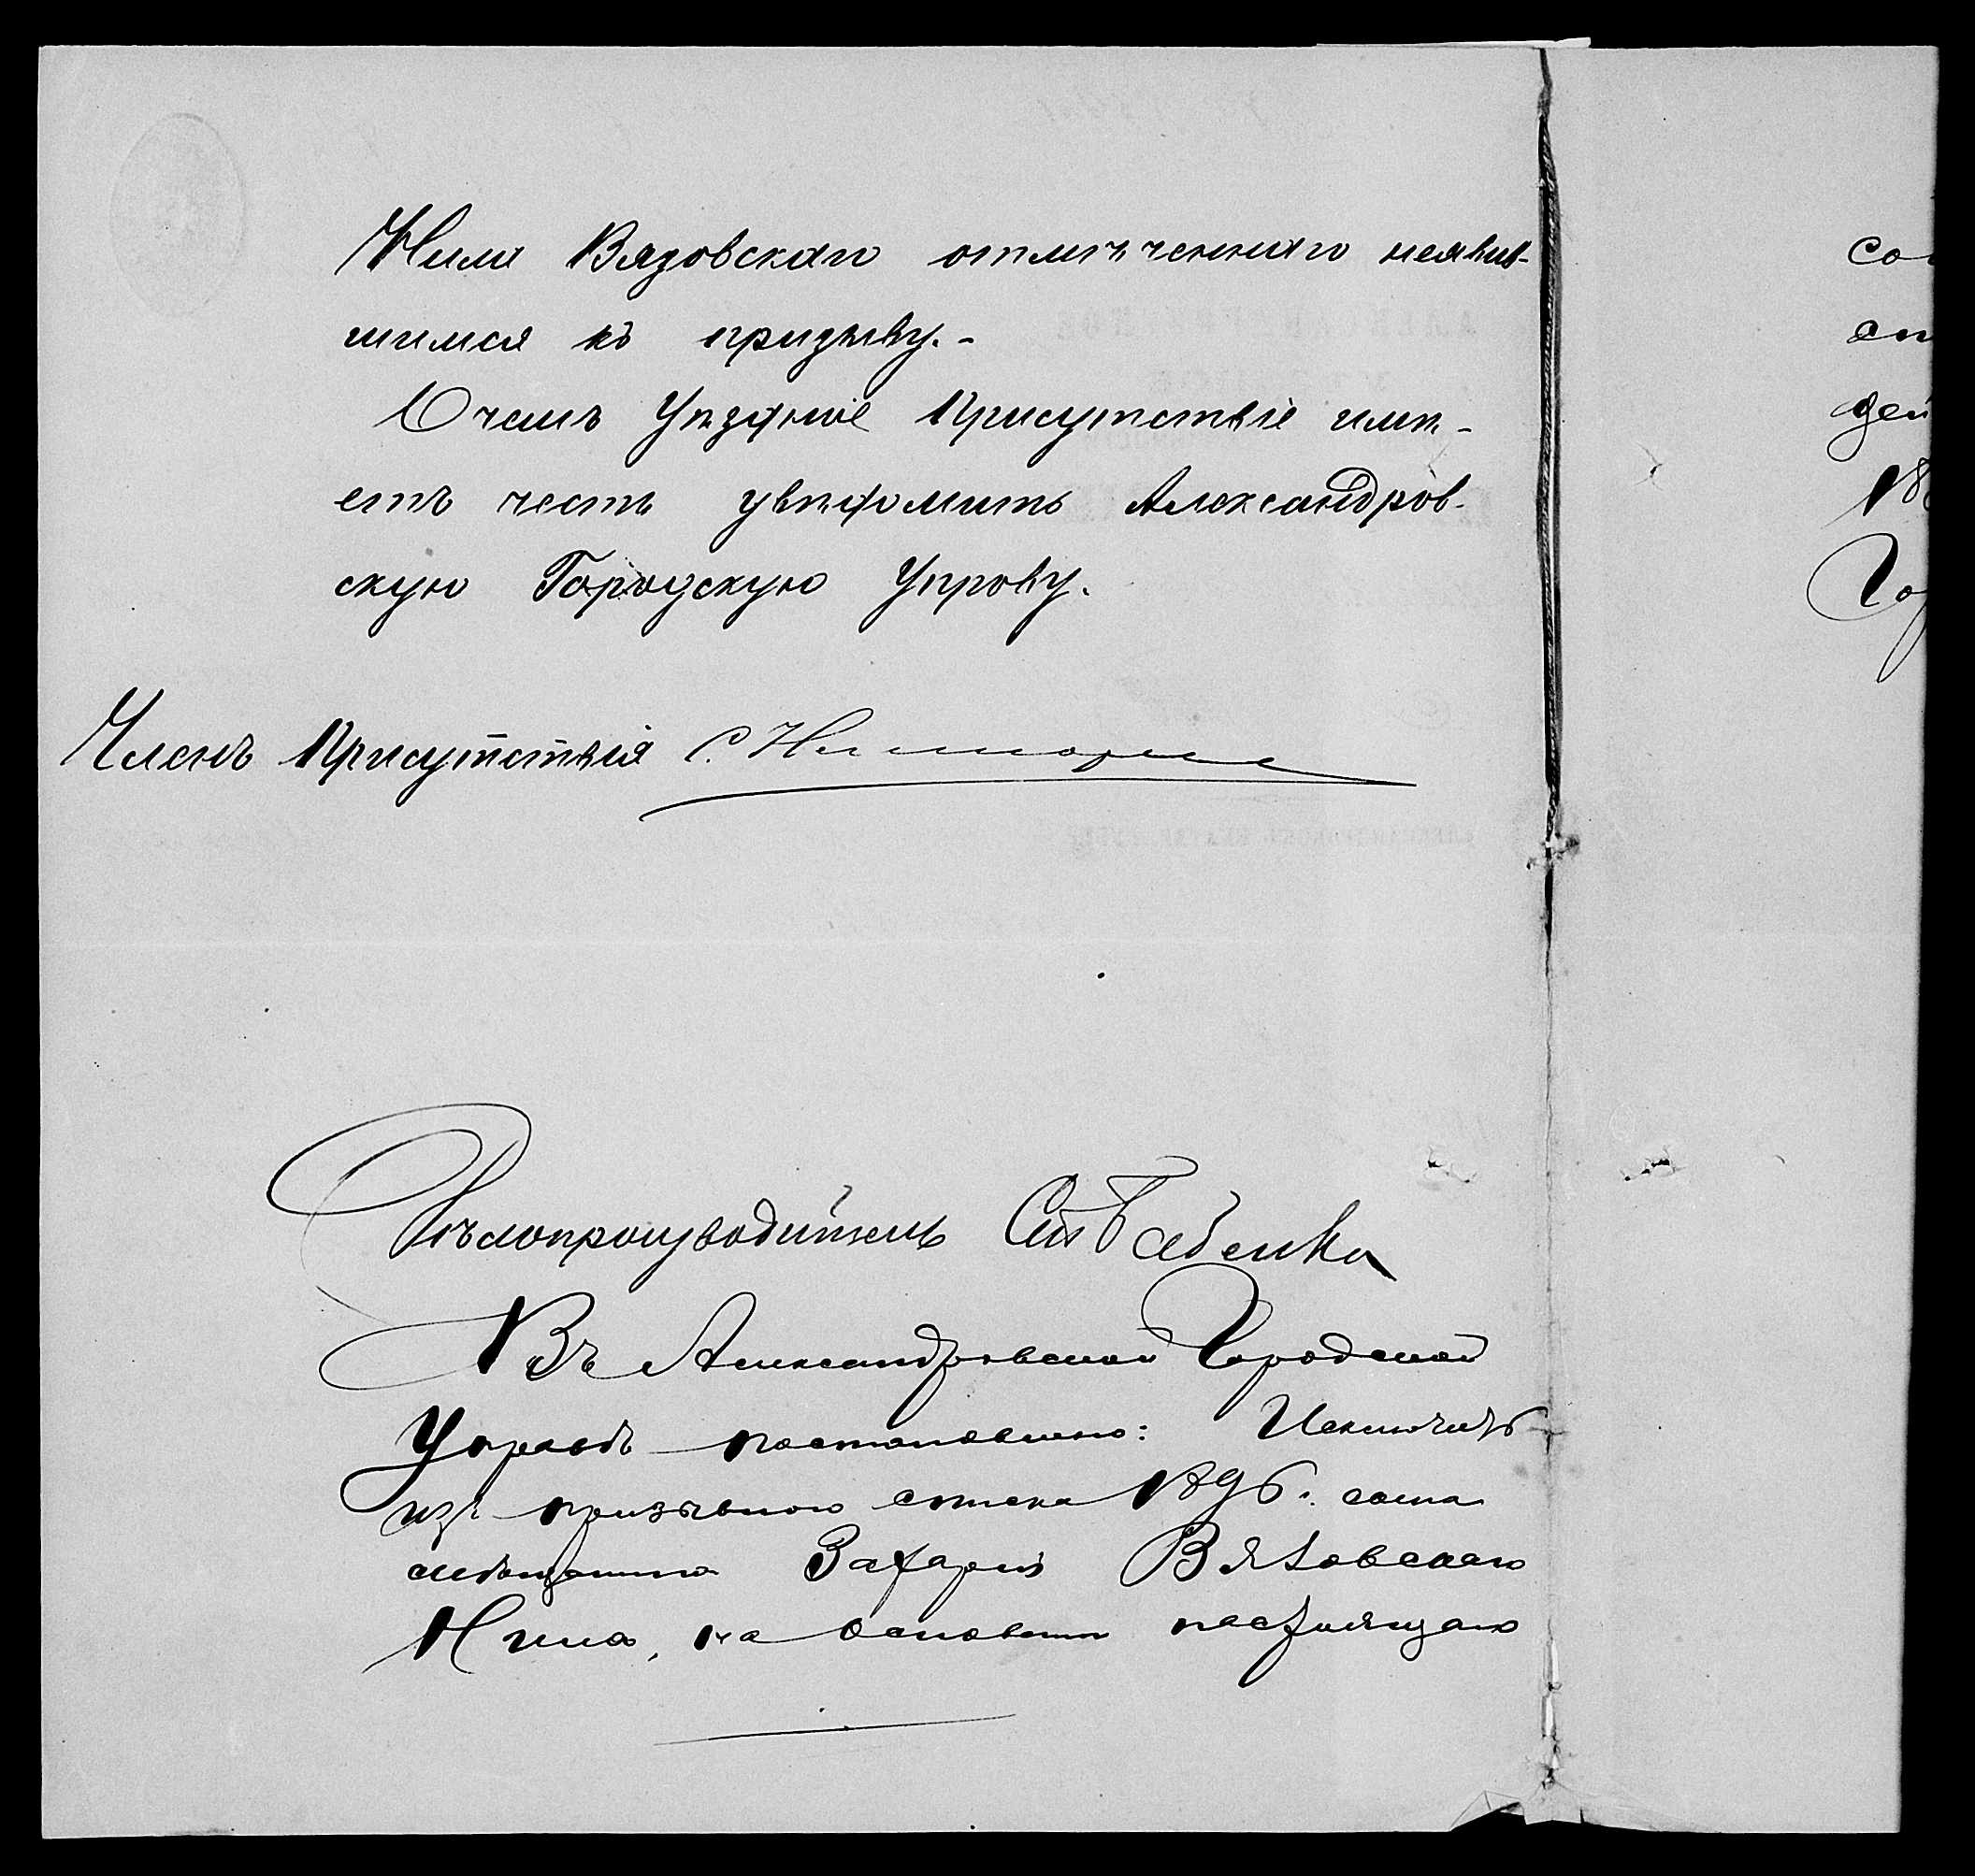 Нила Вязовскаго отмѣченнаго неявив-
шимся къ призыву.-
О чемъ Уѣздное Присутствіе имѣ-
етъ честь увѣдомить Александров-
скую Городскую Управу.
Членъ Присутствія С.
Дѣлопроизводитель Бабенко
Въ Александровской Городской
Управѣ постановлено: Исключить
изъ призывного списка 1896. сына
мѣщанина Захарія Вязовскаго
Нила, на основаніи настоящаго